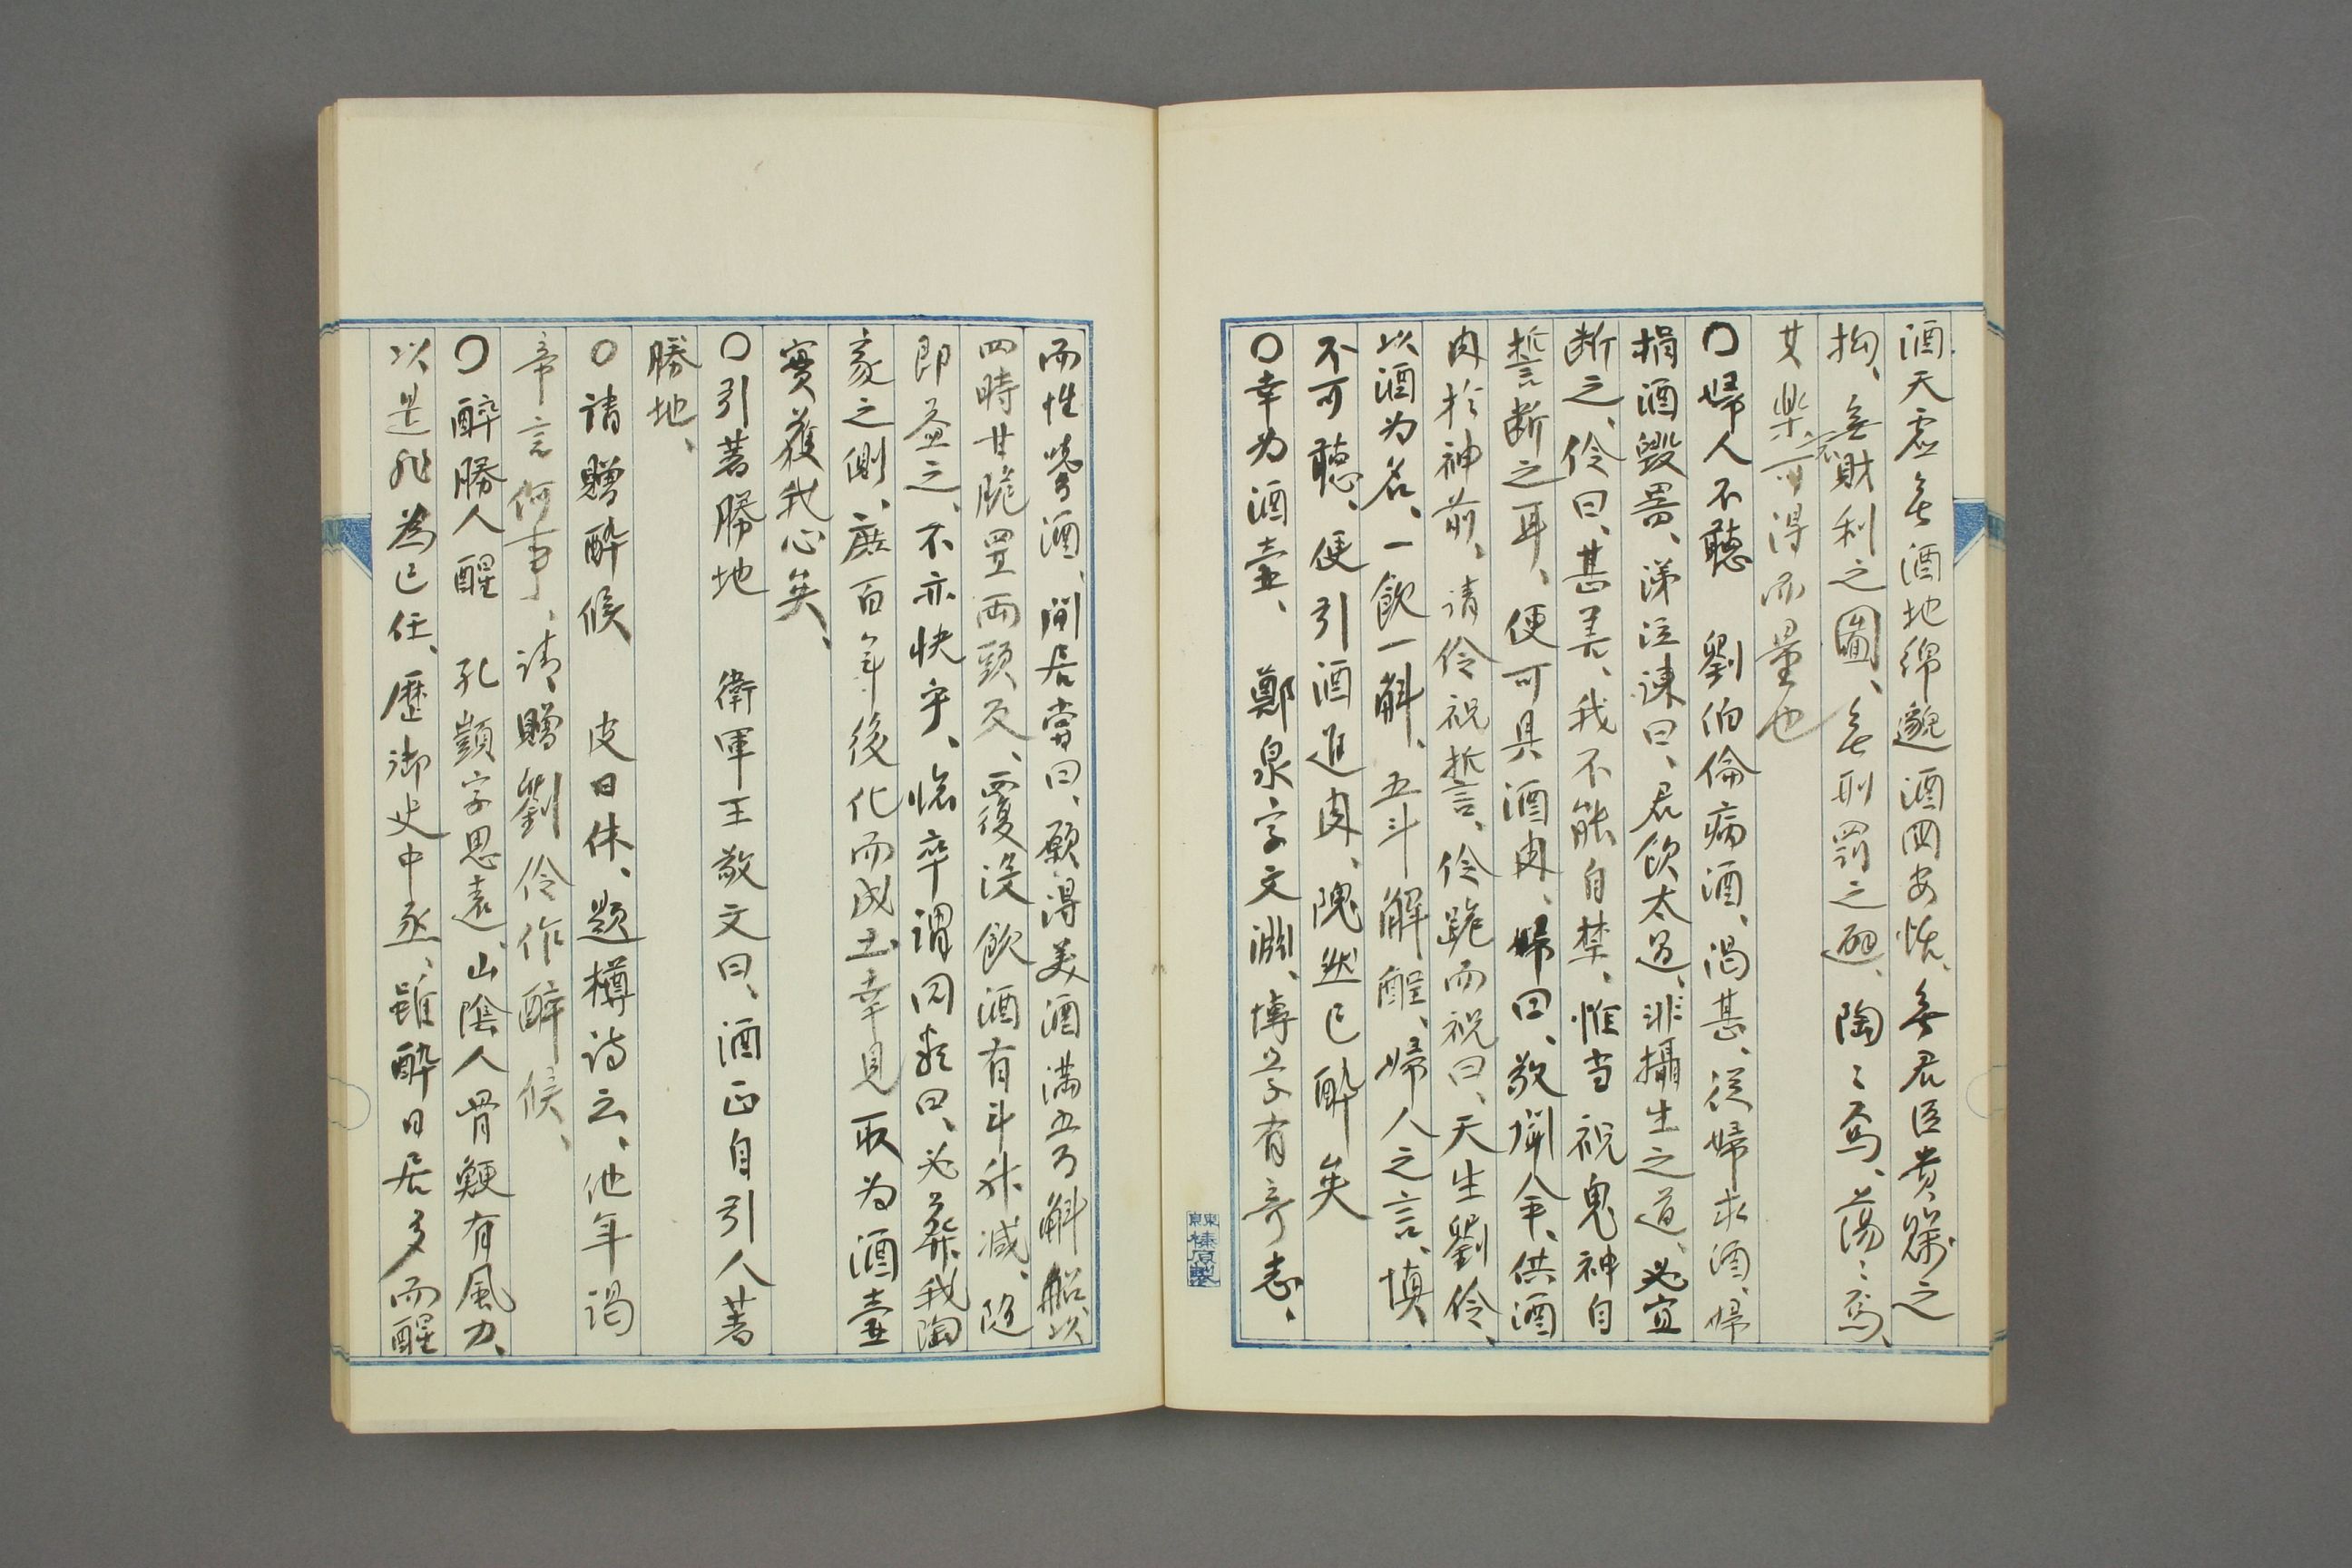 酒天虚無酒地綿邈酒国安恬、無君臣貴賤之
拘、無財利之圖、無刑罰之避、陶〻焉、蕩〻焉、
其樂、不可得而量也
〇婦人不聽　劉伯倫病酒、渇甚、従婦求酒、婦
捐酒毀器、涕泣諌曰、君飲太過、非攝生之道、必宜
断之、伶曰、甚善、我不能自禁、惟当祝鬼神自
誓断之耳、便可具酒肉、婦曰、敬聞命、供酒
肉於神前、请伶祝誓、伶跪而祝曰、天生劉伶、
以酒为名、一飲一斛、五斗解酲、婦人之言、慎
不可聴、便引酒進肉、隗然已酔矣
〇幸为酒壷、　鄭泉字文淵、博学有奇志、
而性嗜酒、閒居嘗曰、願得美酒満五百斛船、以
四時甘脆置両頭、反覆没飲酒有斗升减、随
即益之、不亦快乎、臨卒謂同類曰、必葬我陶
家之側、庶百年後化而成土幸見取为酒壷
實獲我心矣、
〇引著勝地　衛軍王敬文曰、酒正自引人著
勝地、
〇請贈酔候　皮日休、題樽诗云、他年謁
帝言何事、請贈劉伶作酔候、
〇酔勝人醒　孔顗字思遠、山陰人骨鯁有風力、
以是非為己任、歴御史中丞、雖酔日居多而醒
榛原製